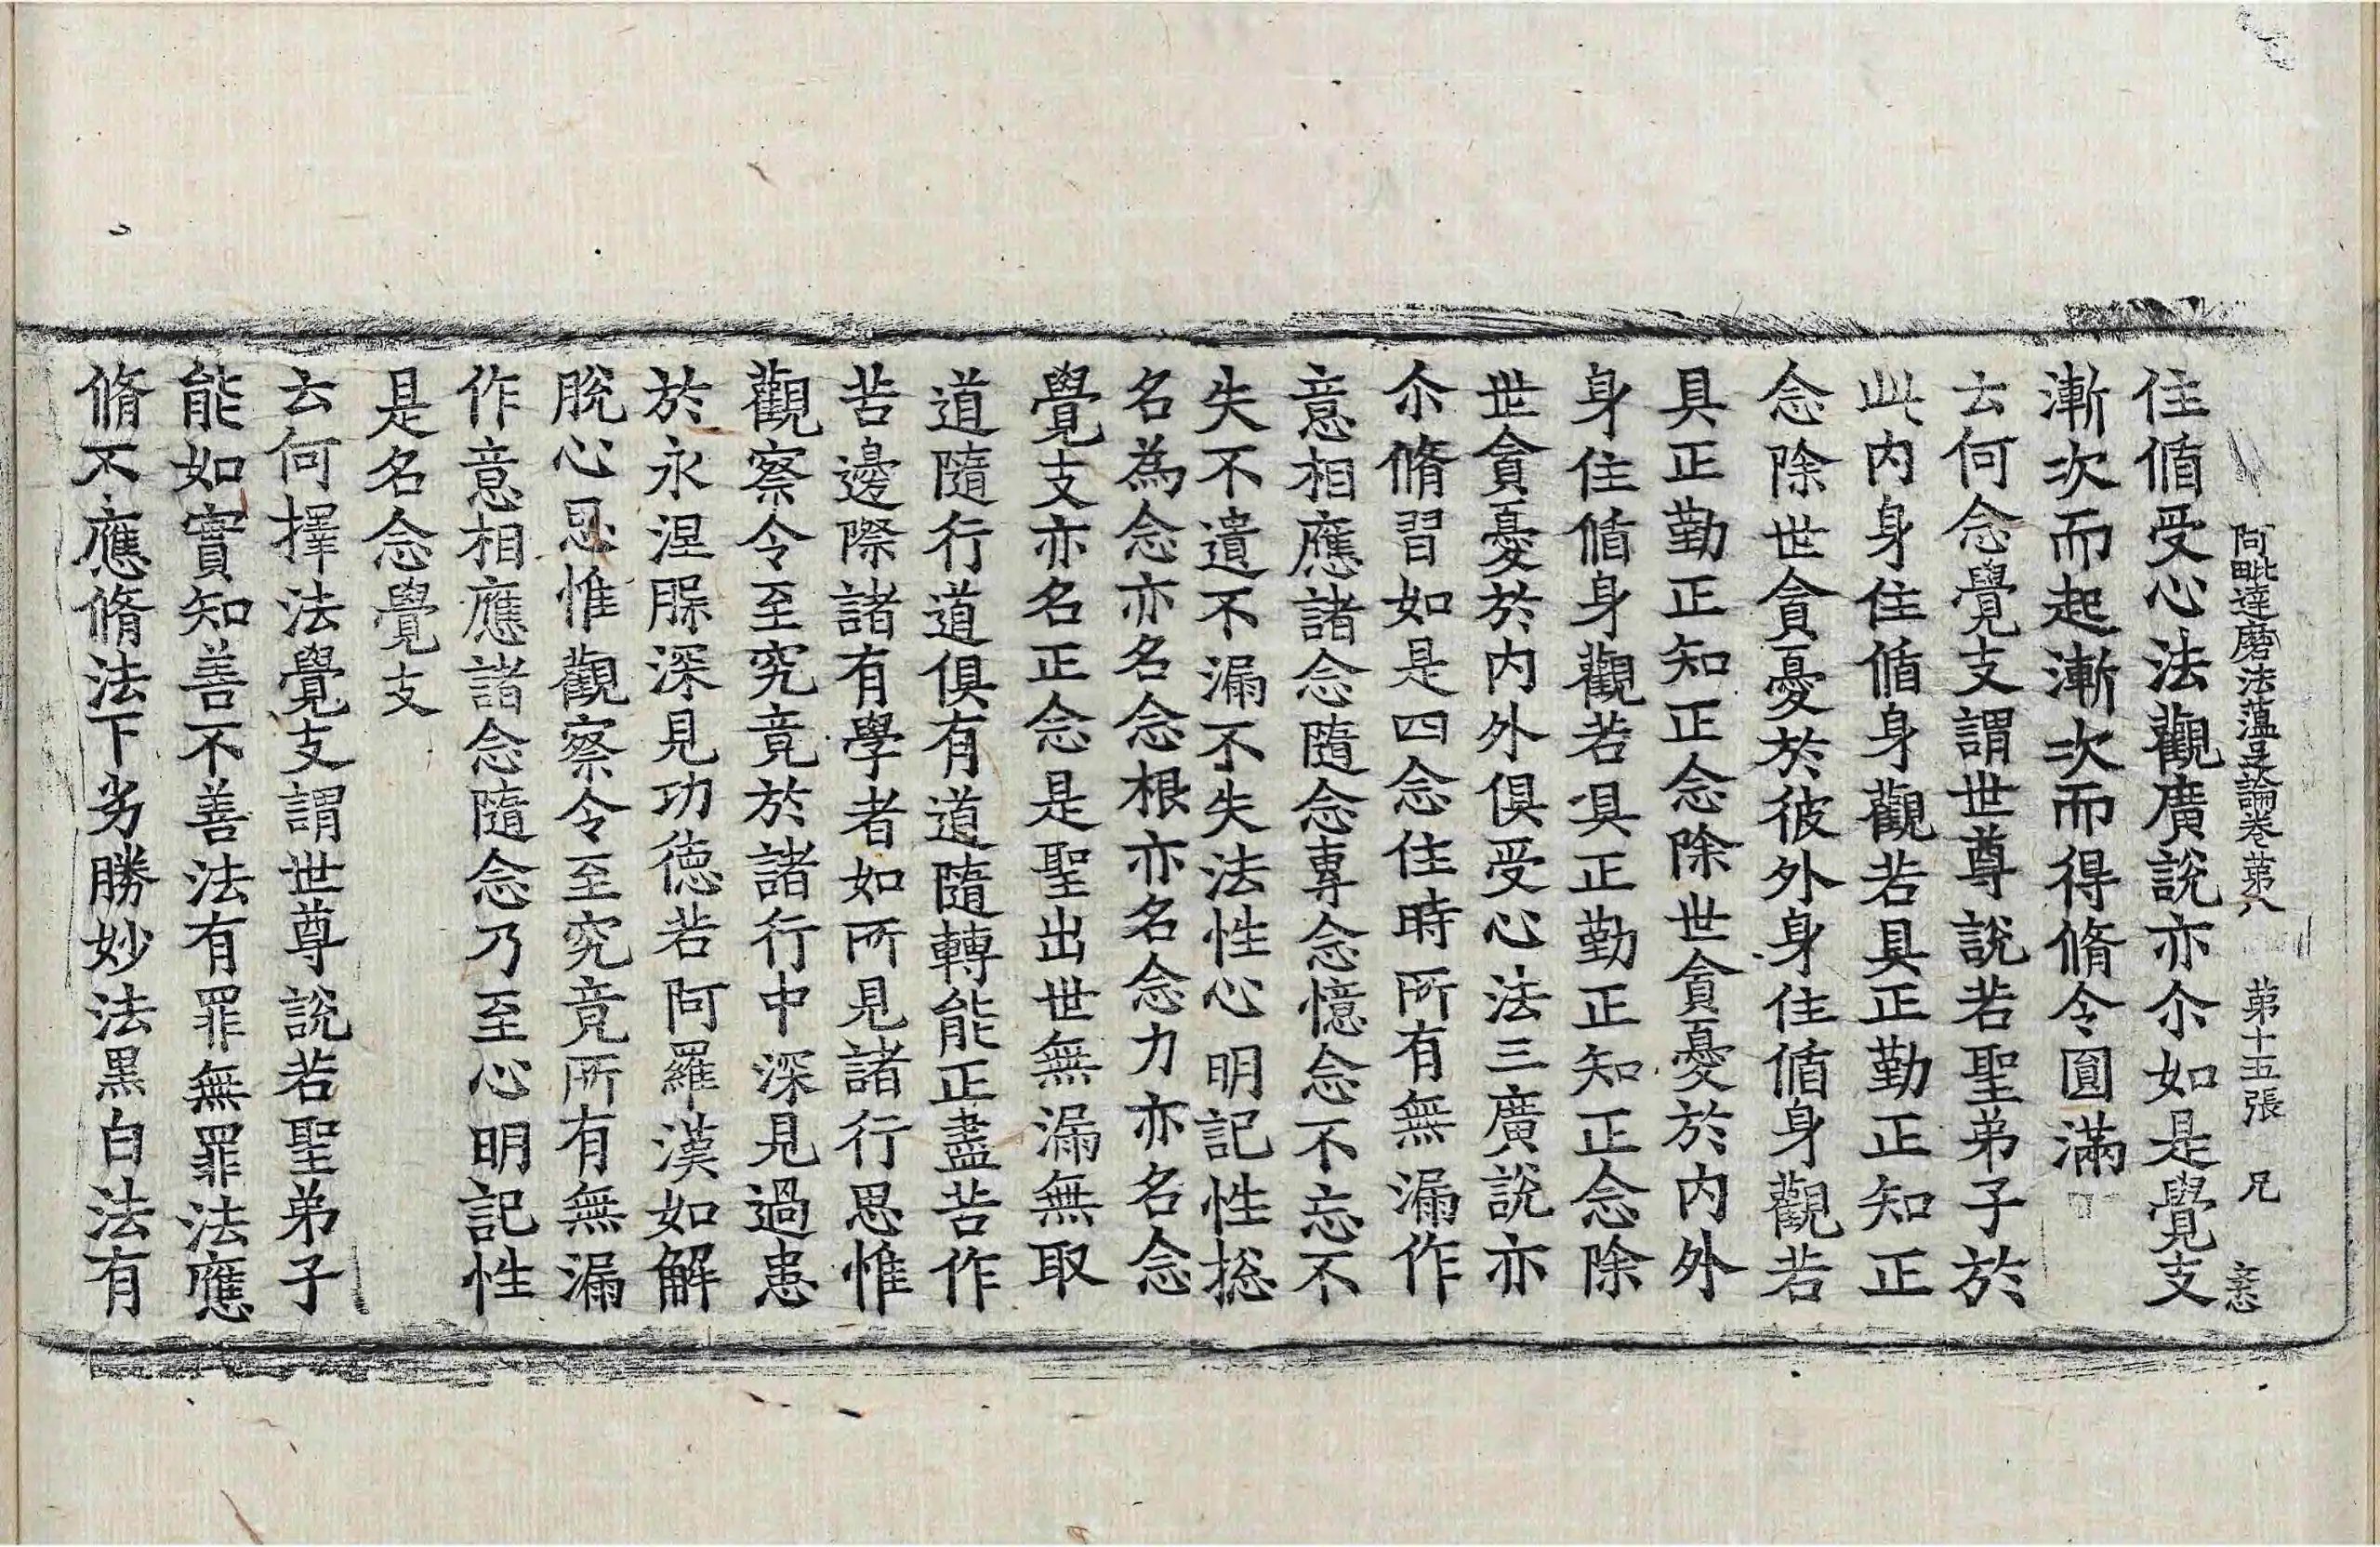 阿毗達磨法蘊足論卷第八 第十五張 兄
住循受心法觀廣說亦尒如是覺支
漸次而起漸次而得脩令圓滿
云何念覺支謂世尊說若聖弟子於
此內身住循身觀若具正勤正知正
念除世貪憂於彼外身住循身觀若
具正勤正知正念除世貪憂於內外
身住循身觀若具正勤正知正念除
世貪憂於內外俱受心法三廣說亦
尒脩習如是四念住時所有無漏作
意相應諸念隨念專念憶念不忘不
失不遺不漏不失法性心明記性揔
名為念亦名念根亦名念力亦名念
覺支亦名正念是聖出世無漏無取
道隨行道俱有道隨轉能正盡苦作
苦邊際諸有學者如所見諸行思惟
觀察令至究竟於諸行中深見過患
於永涅槃深見功德若阿羅漢如解
脫心思惟觀察令至究竟所有無漏
作意相應諸念隨念乃至心明記性
是名念覺支
云何擇法覺支謂世尊說若聖弟子
能如實知善不善法有罪無罪法應
脩不應脩法下劣勝妙法黑白法有